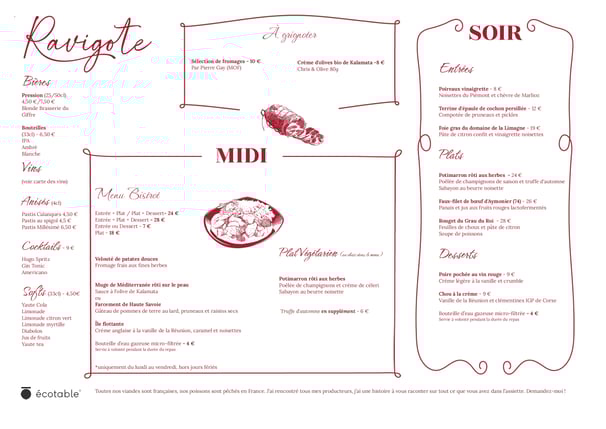 Ravigote
Bières
Pression (25/50cl)
4,50 €/7,50 €
Blonde Brasserie du
Giffre
Bouteilles
(33cl) - 6,50 €
IPA
Ambré
Blanche
Vins
(voir carte des vins)
Anisés (4cl)
Pastis Calanques 4,50 €
Pastis au rpsgid 4,5 €
Pastis Millésime 6,50 €
Cocktails - 9 €
Hugo Spritz
Gin Tonic
Americano
Softs (33cl) - 4,50€
Yaute Cola
Limonade
Limonade citron vert
Limonade myrtille
Diabolos
Jus de fruits
Yaute tea
À grignoter
Sélection de fromages - 10 €
Par Pierre Gay (MOF)
Crème d'olives bio de Kalamata -8 €
Chris & Olive 80g
MIDI
Menu Bistrot
Entrée + Plat / Plat + Dessert= 24 €
Entrée + Plat + Dessert = 28 €
Entrée ou Dessert - 7 €
Plat - 18 €
Velouté de patates douces
Fromage frais aux fines herbes
Muge de Méditerranée rôti sur le peau
Sauce à l'olive de Kalamata
ou
Farcement de Haute Savoie
Gâteau de pommes de terre au lard, pruneaux et raisins secs
Île flottante
Crème anglaise à la vanille de la Réunion, caramel et noisettes
Bouteille d'eau gazeuse micro-filtrée - 4 €
Servie à volonté pendant la durée du repas
*uniquement du lundi au vendredi, hors jours fériés
Plat Végétarien
Potimarron rôti aux herbes
Poêlée de champignons et crème de céleri
Sabayon au beurre noisette
Truffe d'automne en supplément - 6 €
SOIR
Entrées
Poireaux vinaigrette - 8 €
Noisettes du Piémont et chèvre de Marhoz
Terrine d'épaule de cochon persillée - 12 €
Compotée de pruneaux et pickles
Foie gras du domaine de la Limagne - 19 €
Pâte de citron confit et vinaigrette noisettes
Plats
Potimarron rôti aux herbes - 24 €
Poêlée de champignons de saison et truffe d'automne
Sabayon au beurre noisette
Faux-filet de bœuf d'Aymonier (74) - 26 €
Panais et jus aux fruits rouges lactofermentés
Rouget du Grau du Roi - 28 €
Feuilles de choux et pâte de citron
Soupe de poissons
Desserts
Poire pochée au vin rouge - 9 €
Crème légère à la vanille et crumble
Chou à la crème - 9 €
Vanille de la Réunion et clémentines IGP de Corse
Bouteille d'eau gazeuse micro-filtrée - 4 €
Servie à volonté pendant la durée du repas
écotable
Toutes nos viandes sont françaises, nos poissons sont pêchés en France. J'ai rencontré tous mes producteurs, j'ai une histoire à vous raconter sur tout ce que vous avez dans l'assiette. Demandez-moi !